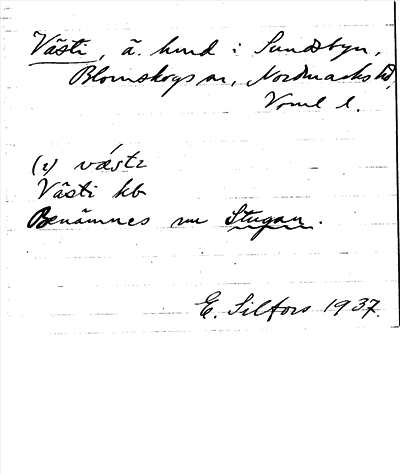 Västi, ä. hmd i Sundsbyn,
Blomskogs sn, Nordmarks hd,
Vrml l.
(i) væstɩ
Västi kb
Benämnes nu Stugan.
E. Silfors 1937.